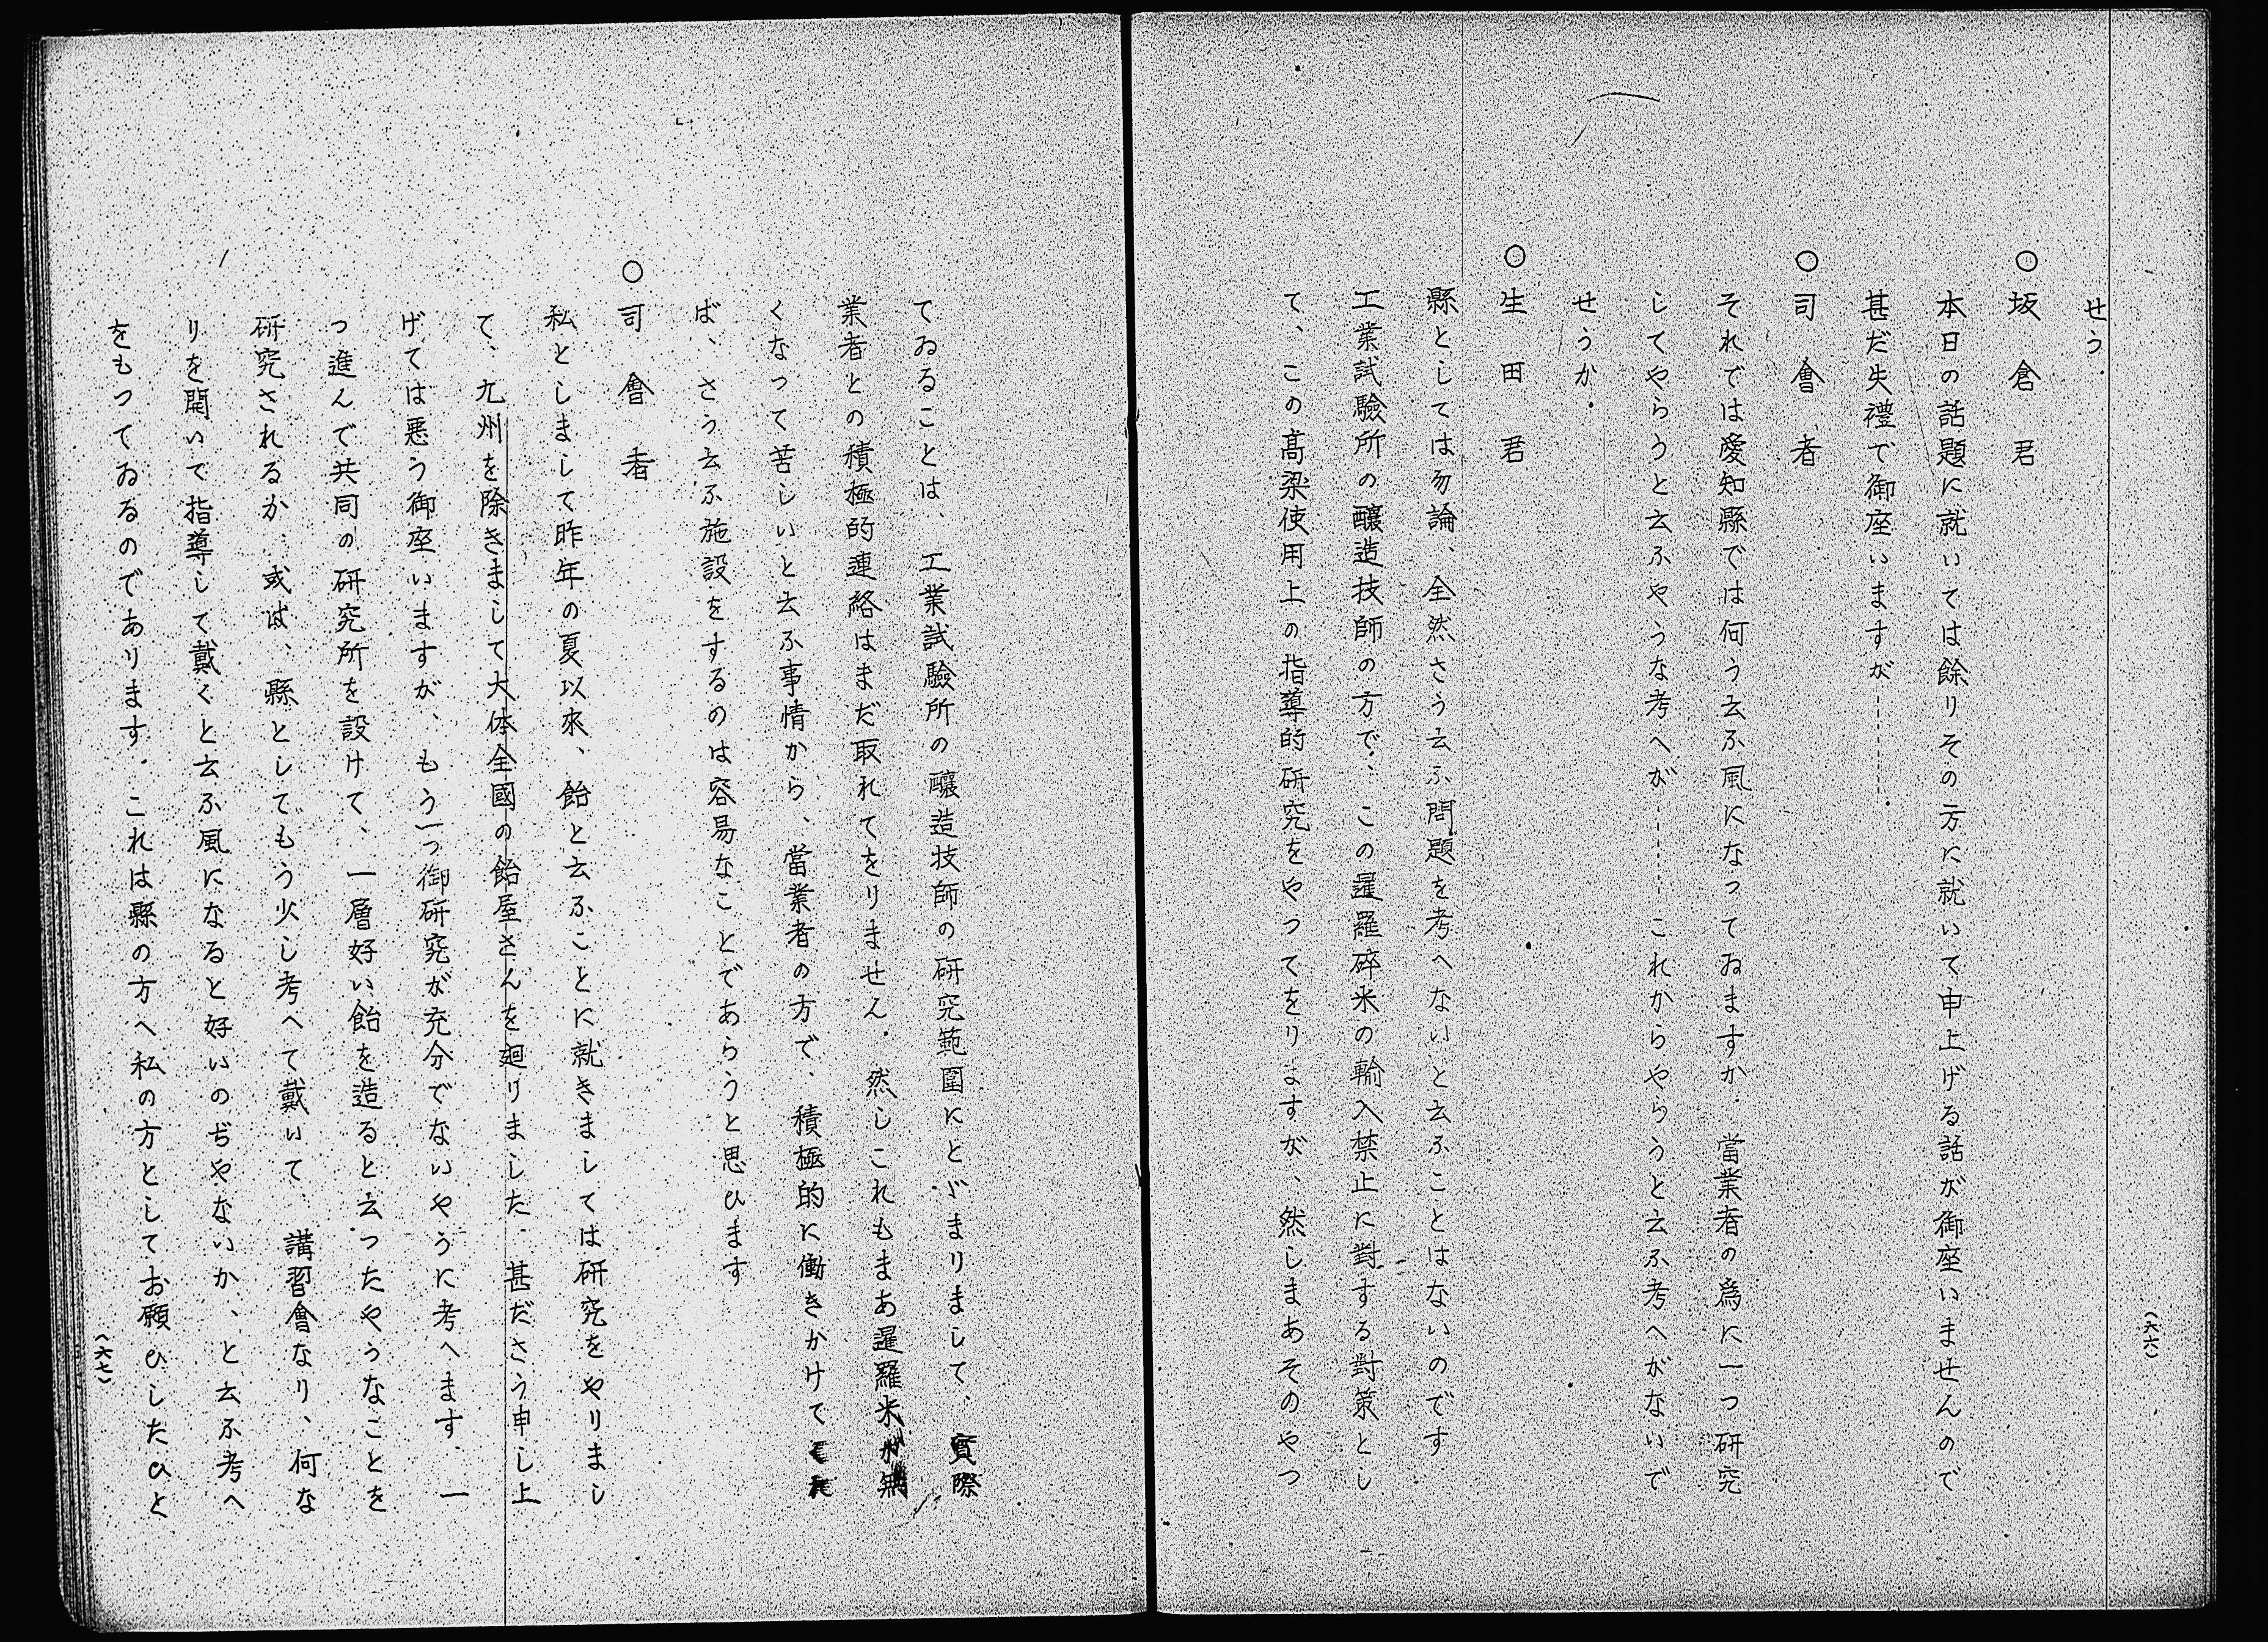 せう．
○坂倉君
本日の話題に就いては餘りその方に就いて申上げる話が御座いませんので
甚だ失禮で御座いますが------．
○司會者
それでは愛知縣では何う云ふ風になってゐますか．當業者の爲に一つ研究
してやらうと云ふやうな考へが------これからやらうと云ふ考へがないで
せうか．
○生田君
縣としては勿論、全然さう云ふ問題を考へないと云ふことはないのです
工業試驗所の釀造技師の方で、この暹羅碎米の輸入禁止に對する對策とし
て、この高梁使用上の指導的研究をやってをりますが、然しまあそのやつ
（六六）
てゐることは、工業試驗所の釀造技師の研究範圍にとゞまりまして、實際
業者との積極的連絡はまだ取れてをりません．然しこれもまあ暹羅米が無
くなって苦しいと云ふ事情から、當業者の方で、積極的に働きかけてくれ
ば、さう云ふ施設をするのは容易なことであらうと思ひます
○司會者
私としまして昨年の夏以來、飴と云ふことに就きましては研究をやりまし
て、九州を除きまして大体全國の飴屋さんを廻りました．甚ださう申し上
げては悪う御座いますが、もう一つ御研究が充分でないやうに考へます．一
つ進んで共同の研究所を設けて、一層好い飴を造ると云ったやうなことを
研究されるか．或は、縣としてもう少し考へて戴いて．講習會なり、何な
りを開いで指導して戴くと云ふ風になると好いのぢやないか、と云ふ考へ
をもってゐるのであります．これは縣の方へ私の方としてお願ひしたひと
（六七）